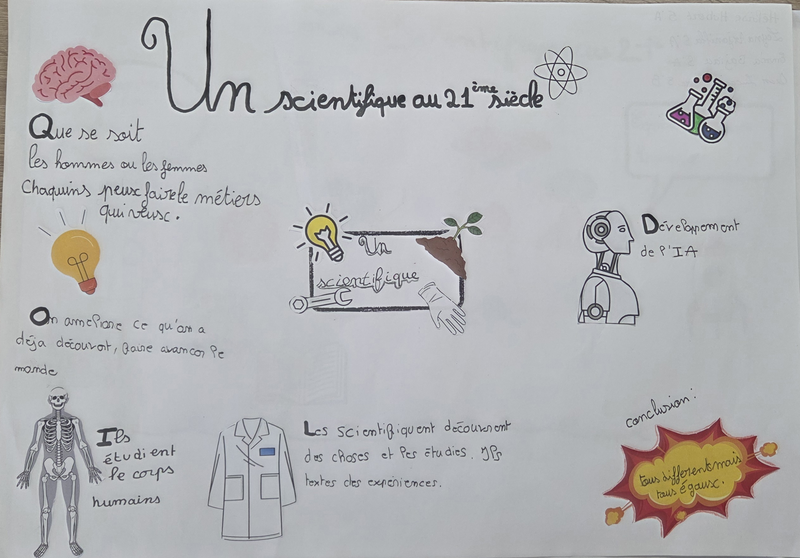 Un scientifique au 21ème siècle
Que se soit
les hommes ou les femmes
Chaquins peux faire le métiers
qui veux.
Un
scientifique
Dévelopement
de l'IA
On ameliore ce qu'on a
déja découvert, faire avancer le
monde
Ils
étudient
le corps
humains
Les scientifiquent découvrent
des choses et les étudies. Ils
testes des expériences.
conclusion:
tous différent mais
tous égaux.